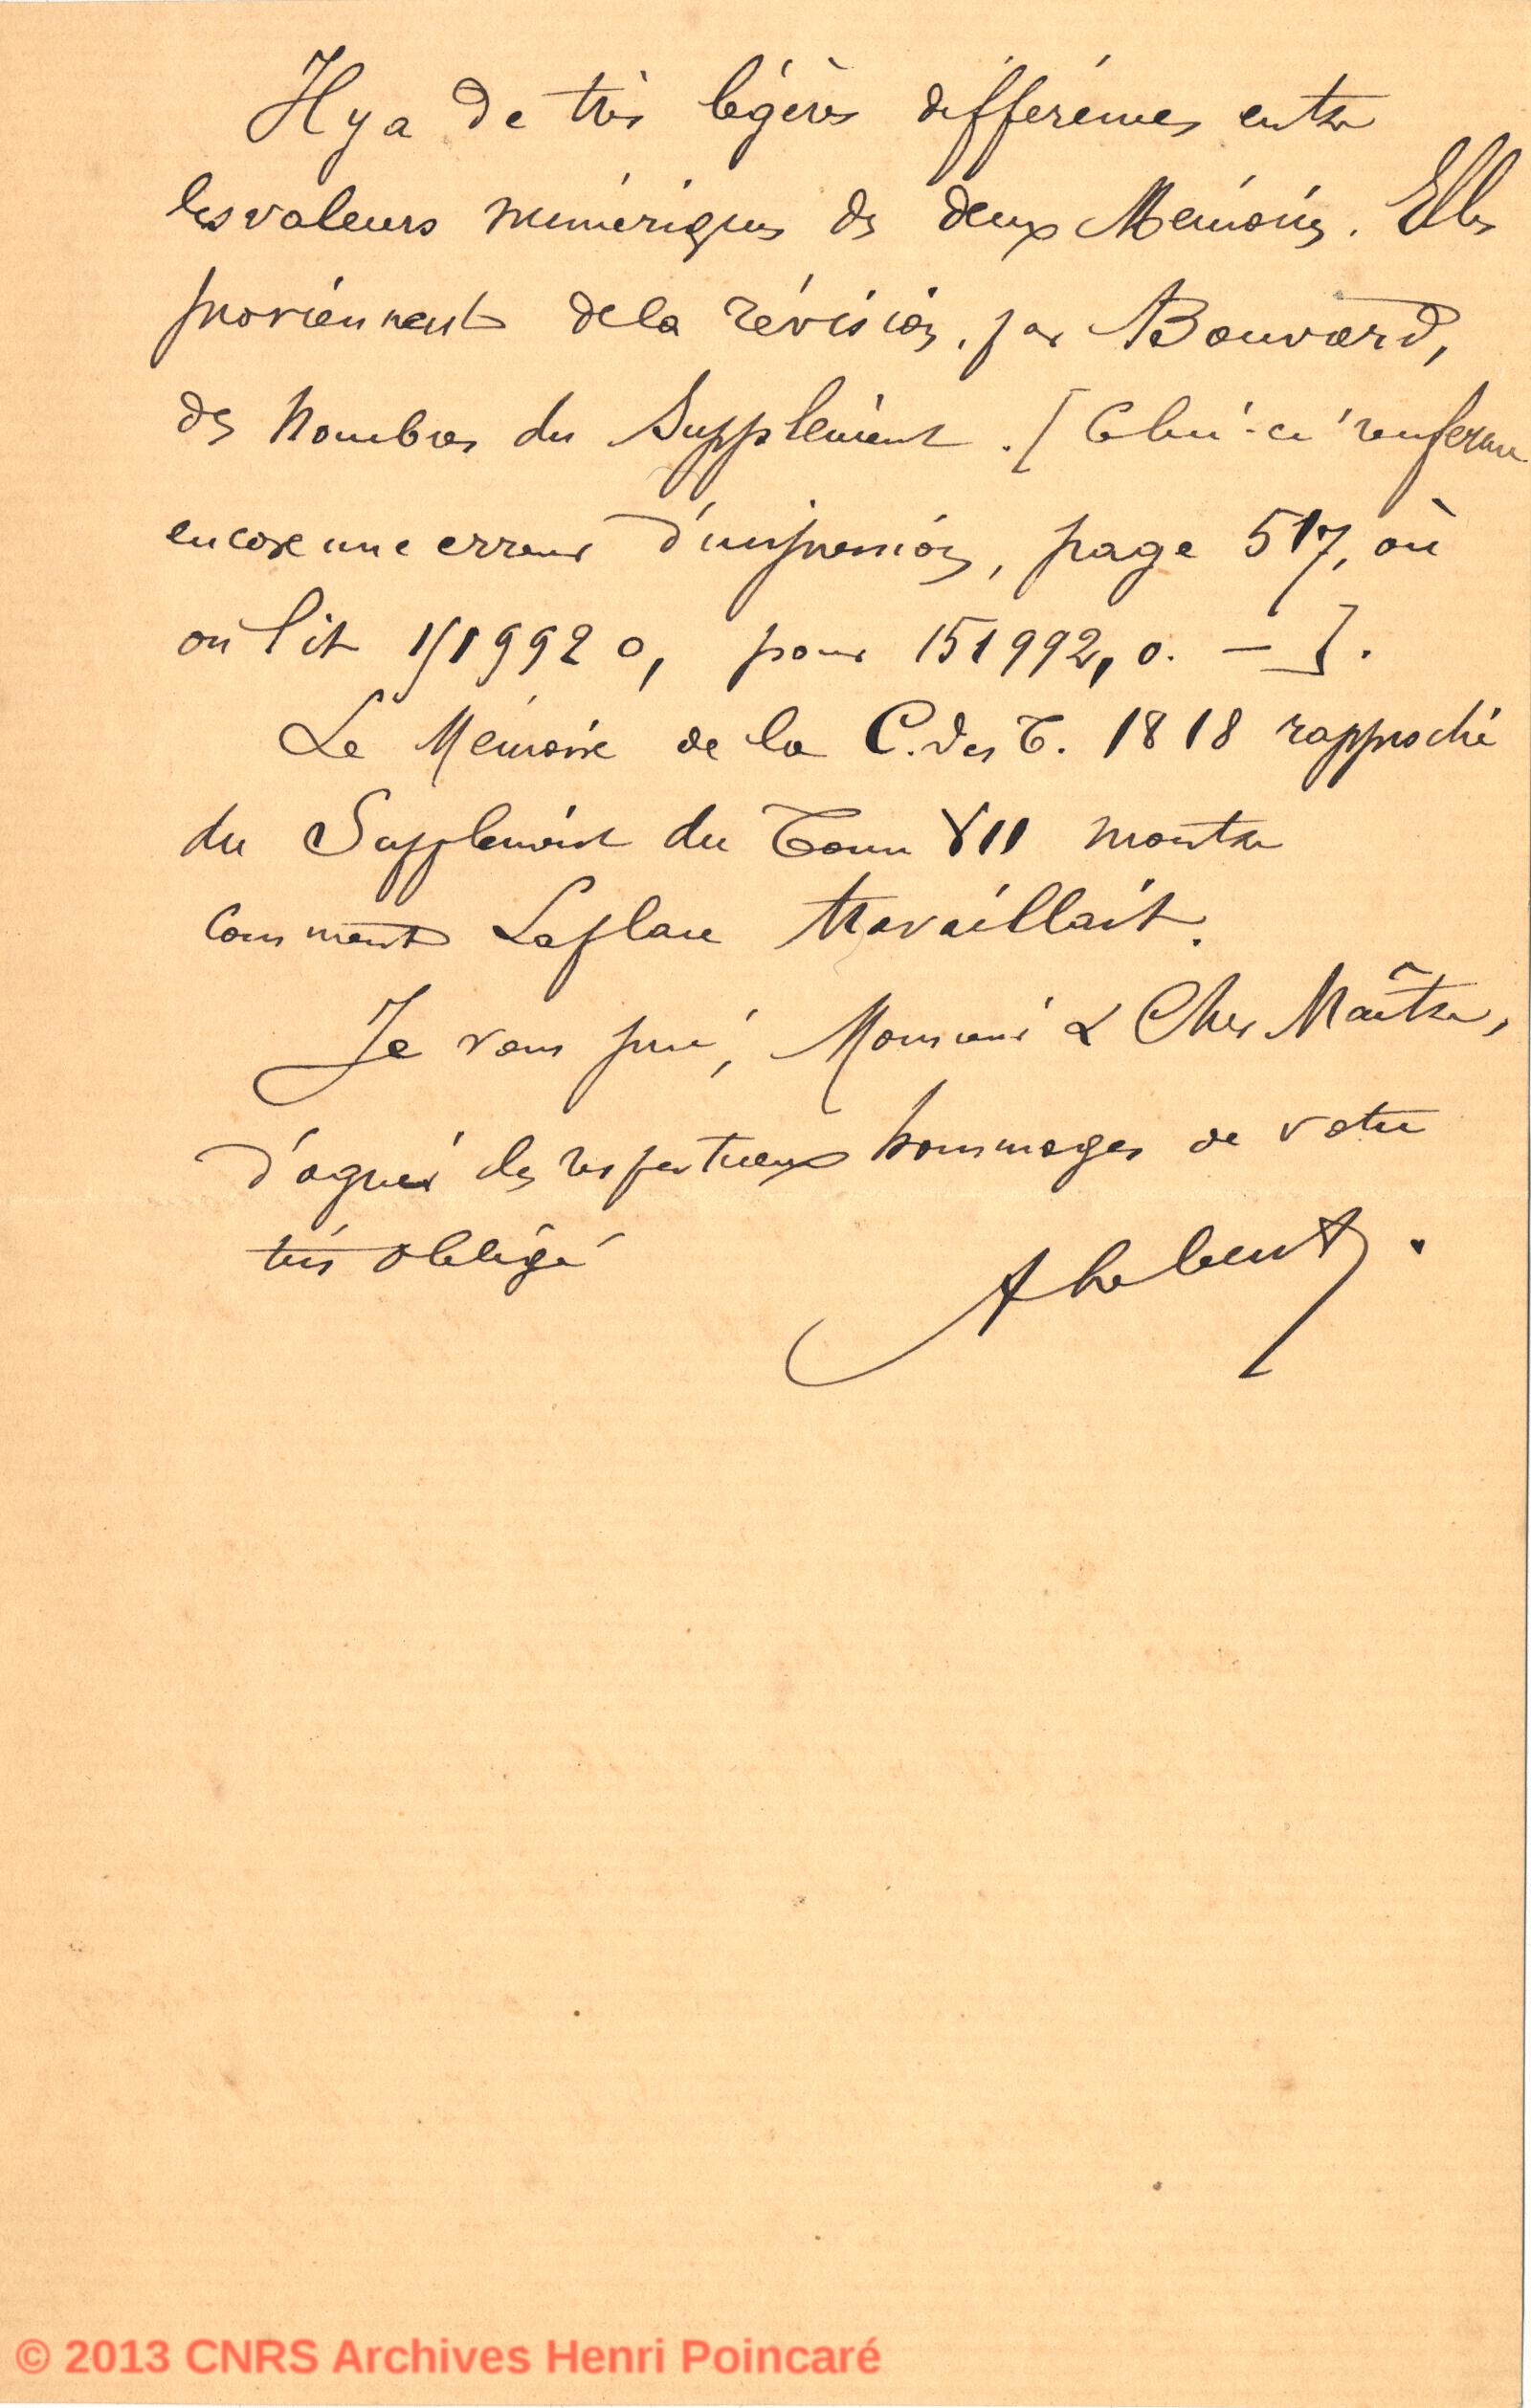 Il y a de très légères différences entre
les valeurs numériques des deux Mémoires. Elles
proviennent de la révision, par Bouvard,
des nombres du Supplément. [Celui-ci renferme
encore une erreur d'impression, page 517, où
on lit 1519920, pour 151992,0. — ].
Le Mémoire de la C. des T. 1818 rapproché
du Supplément du Tome VII montre
comment Laplace travaillait.
Je vous prie, Monsieur & Cher Maître,
d'agréer les respectueux hommages de votre
très obligé
© 2013 CNRS Archives Henri Poincaré